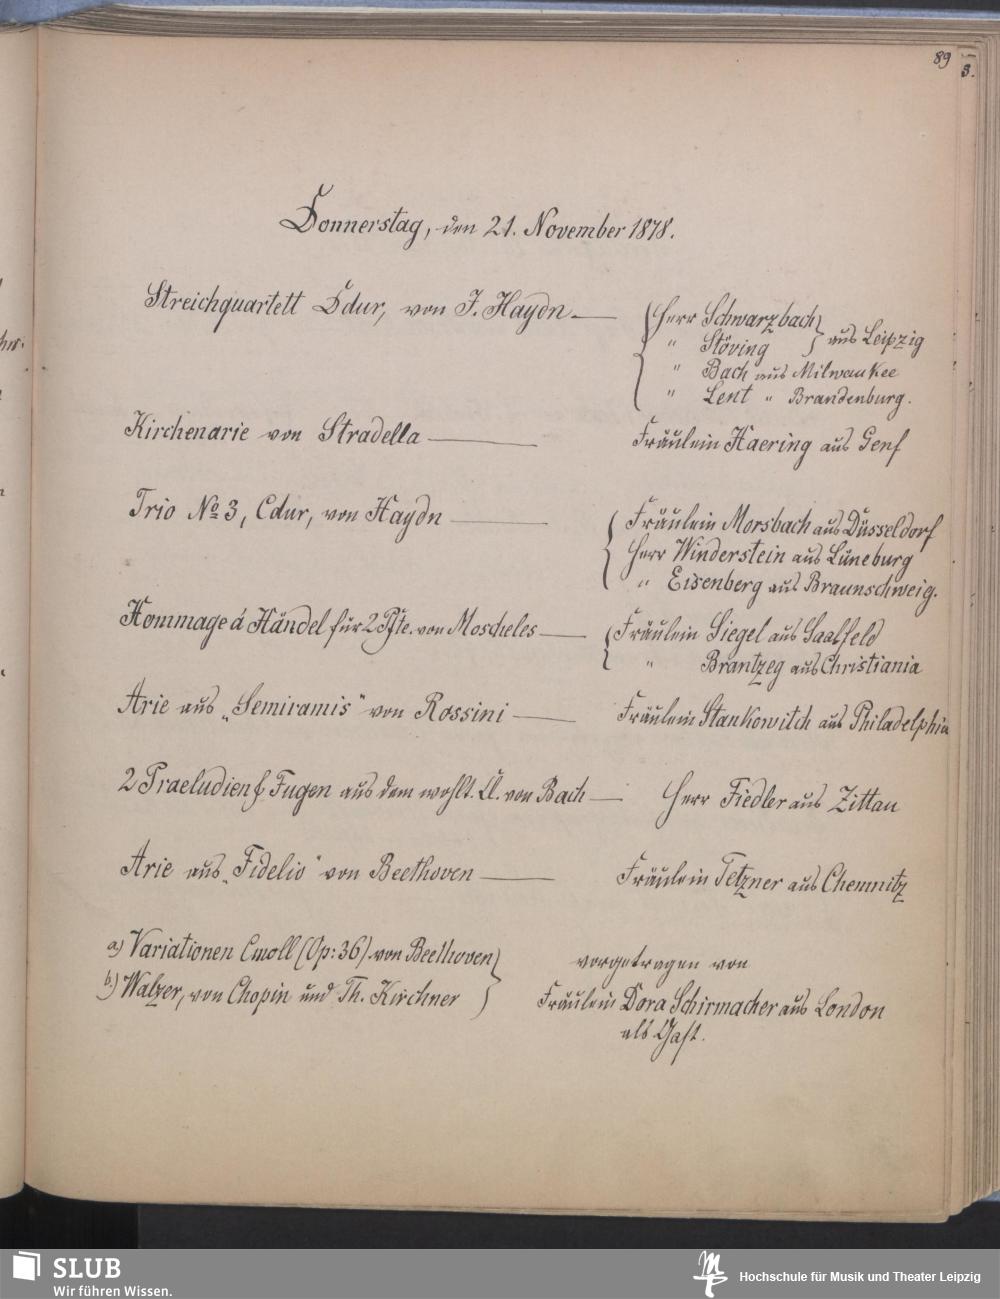 89
3.
Donnerstag, den 21. November 1878.
Streichquartett Ddur, von J. Haydn. — Herr Schwarzbach
" Stöving } aus Leipzig
" Bach aus Milwaukee
" Lent " Brandenburg.
Kirchenarie von Stradella — Fräulein Haering aus Genf
Trio No 3, Cdur, von Haydn — Fräulein Morsbach aus Düsseldorf
Herr Winderstein aus Lüneburg
" Eisenberg aus Braunschweig.
Hommage á Händel für 2 Pfte. von Moscheles — Fräulein Siegel aus Saalfeld
" Brantzeg aus Christiania
Arie aus „Semiramis" von Rossini — Fräulein Stankowitch aus Philadelphia
2 Praeludien & Fugen aus dem wohlt. Cl. von Bach — Herr Fiedler aus Zittau
Arie aus „Fidelio" von Beethoven — Fräulein Tetzner aus Chemnitz
a) Variationen Cmoll (Op: 36) von Beethoven
b) Walzer, von Chopin und Th. Kirchner
vorgetragen von
Fräulein Dora Schirmacher aus London
als Gast.
SLUB
Wir führen Wissen.
Hochschule für Musik und Theater Leipzig